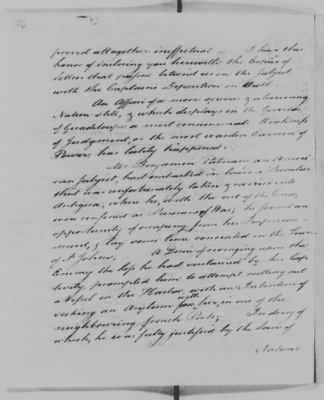 proved altogether ineffectual — I have the
honor of inclosing you herewith the Copies of
Letters that passed between us on the subject,
with the Captains Deposition on Oath.
An Affair of a more serious & alarming
Nature still, & which displays in the Governor
of Guadaloupe a most consummate Weakness
of Judgement, or the most wanton Exercise of
Power, has lately happened.
Mr. Benjamin Putnam an Ameri
can subject, had embarked in a Privateer
that was unfortunately taken & carried into
Antigua, where he, with the rest of the Crew,
was confined as Prisoners of War; he found an
opportunity of escaping from his Imprison
ment, & lay some time concealed in the Town
of St Johns; A Desire of avenging upon the
Enemy the loss he had sustained by his Cap
tivity, prompted him to attempt cutting out
a Vessel in the Harbor, with an Intention of
seeking an Asylum with her, in one of the
neighbouring french Ports; In doing of
which, he was fully justified by the Laws of
Nations